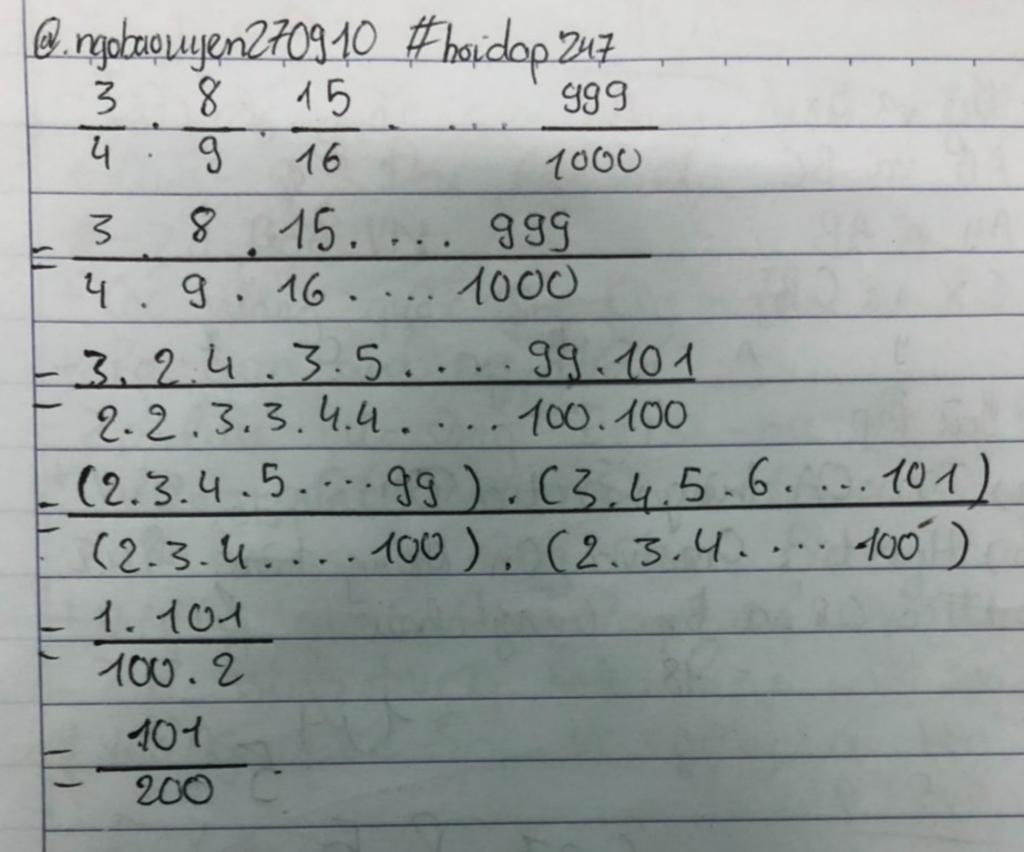 @.ngobaouyen270910 #hoidap247
3/4 . 8/9 . 15/16 . ... 999/1000
= 3 . 8 . 15 . ... 999 / 4 . 9 . 16 . ... 1000
= 3 . 2 . 4 . 3 . 5 . ... 99 . 101 / 2 . 2 . 3 . 3 . 4 . 4 . ... 100 . 100
= (2 . 3 . 4 . 5 . ... 99) . (3 . 4 . 5 . 6 . ... 101) / (2 . 3 . 4 . ... 100) . (2 . 3 . 4 . ... 100)
= 1 . 101 / 100 . 2
= 101 / 200